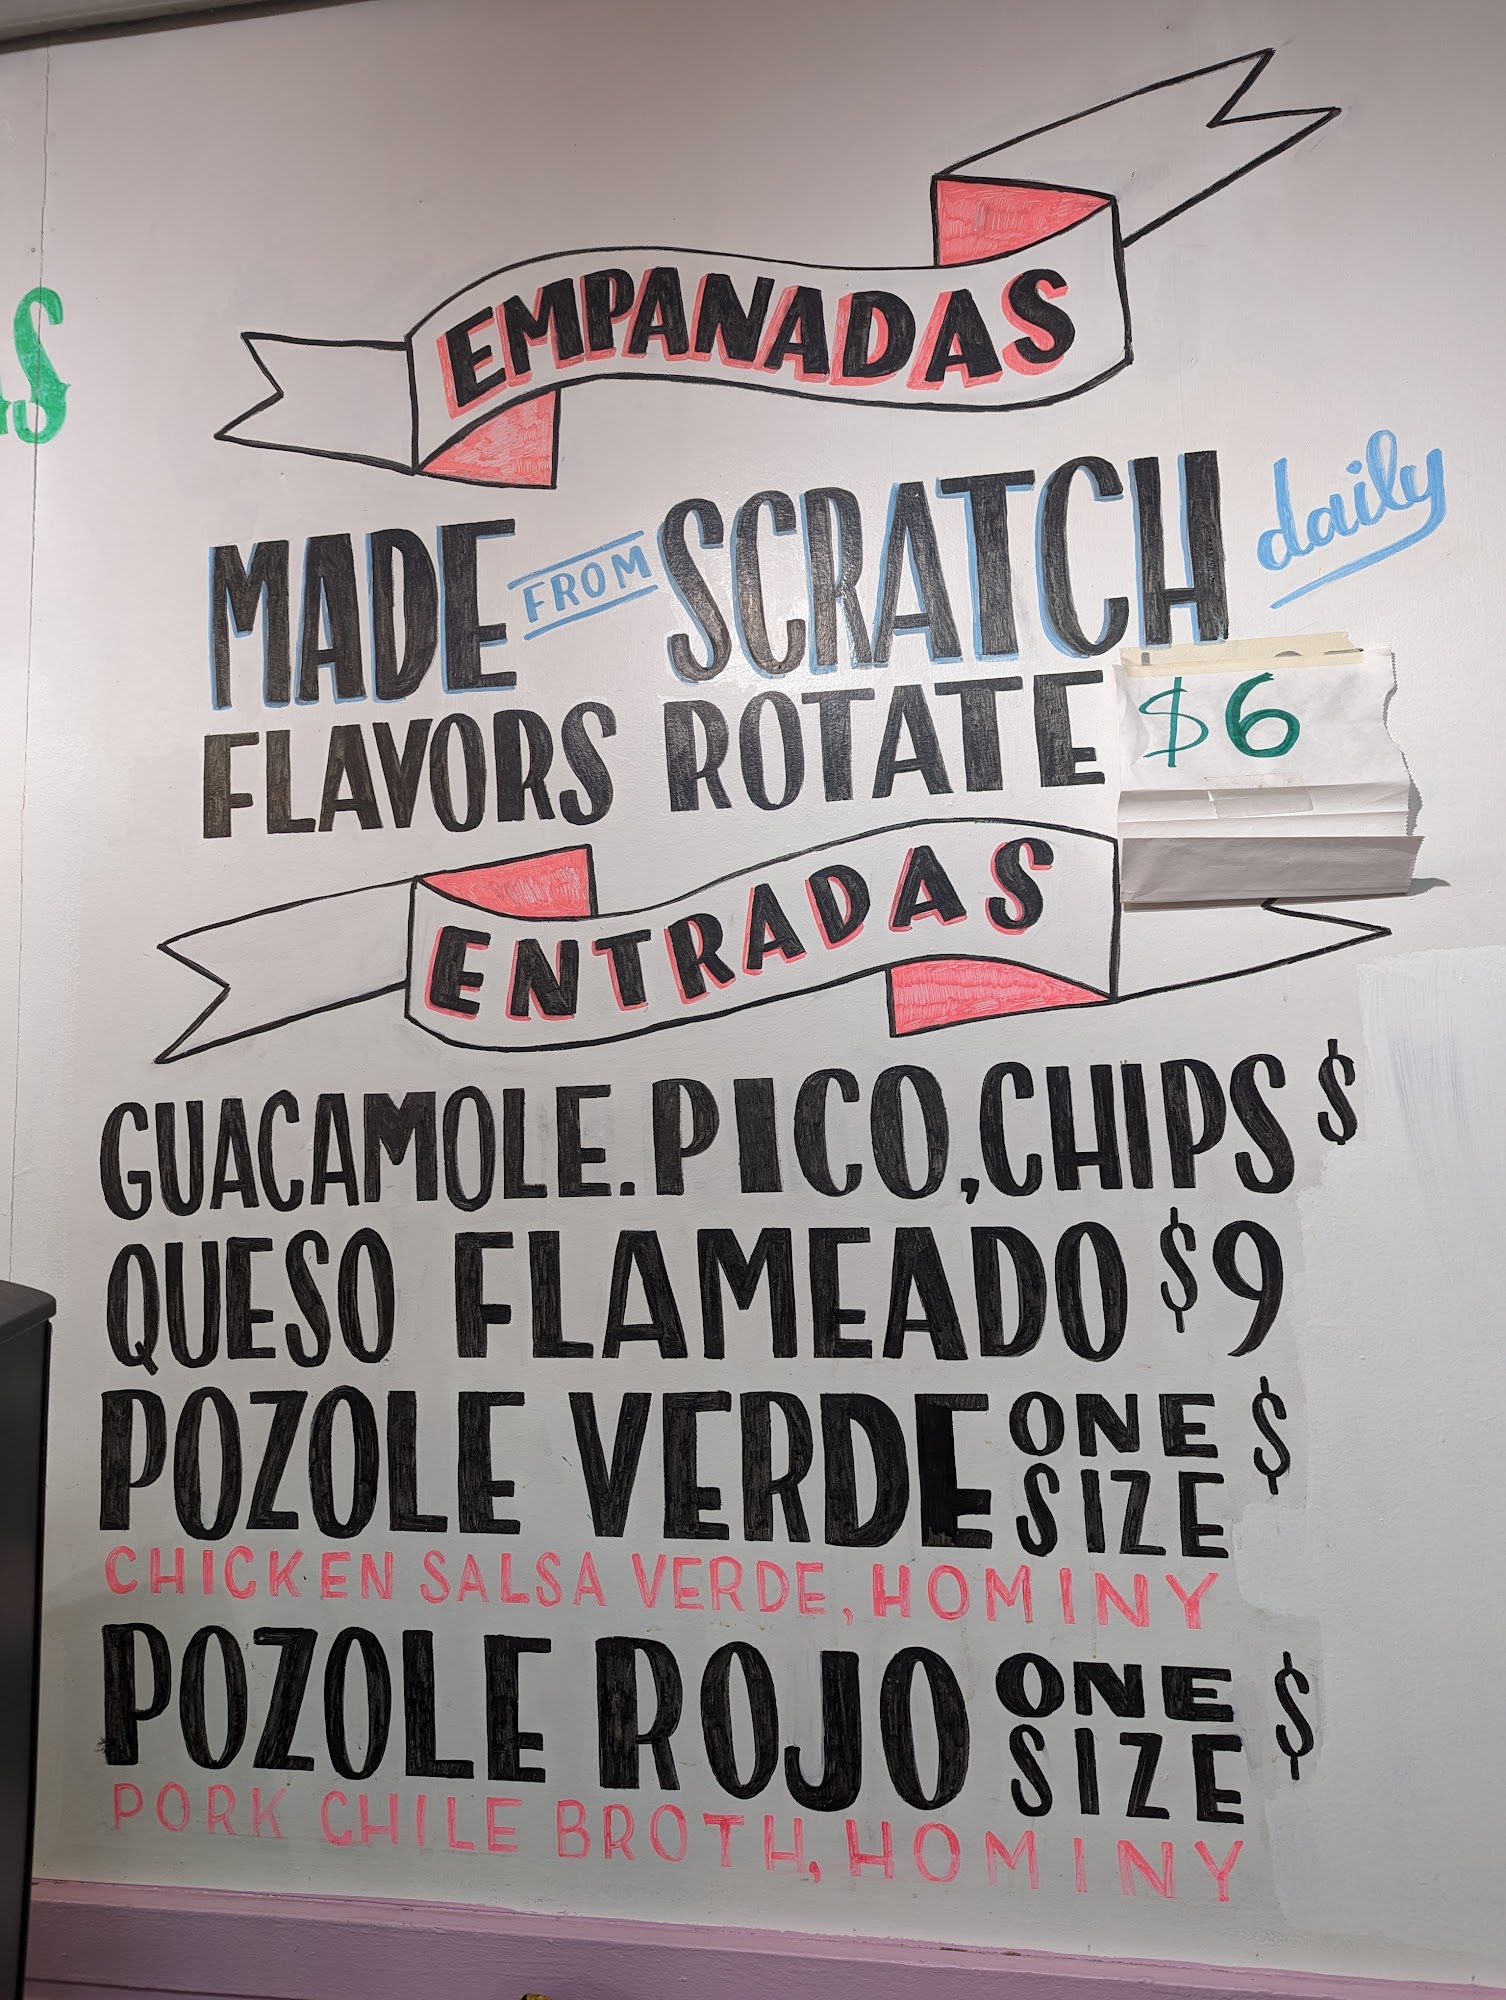 EMPANADAS
MADE FROM SCRATCH daily
FLAVORS ROTATE $6
ENTRADAS
GUACAMOLE. PICO, CHIPS $
QUESO FLAMEADO $9
POZOLE VERDE ONE SIZE $
CHICKEN SALSA VERDE, HOMINY
POZOLE ROJO ONE SIZE $
PORK CHILE BROTH, HOMINY